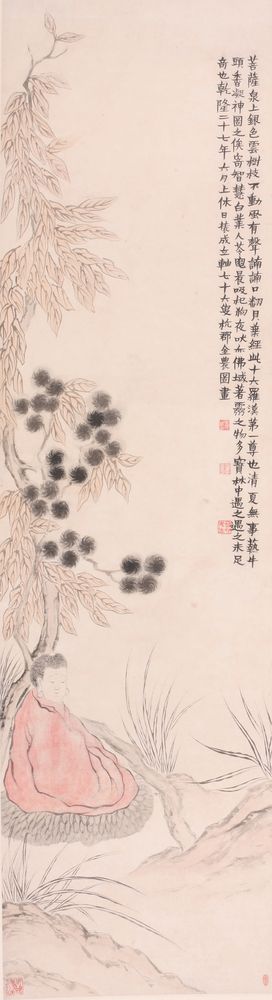 菩薩泉上銀色雲樹枝不動風有聲誦誦口翻月葉經此十六羅漢第一尊也清夏無事爇牛
頭香凝神圖之俟智慧白業人夜吠亦佛域著靈之物多寶林中遇之遇之未足
奇也乾隆二十七年六月上休日成立軸七十六叟杭郡金農圖畫